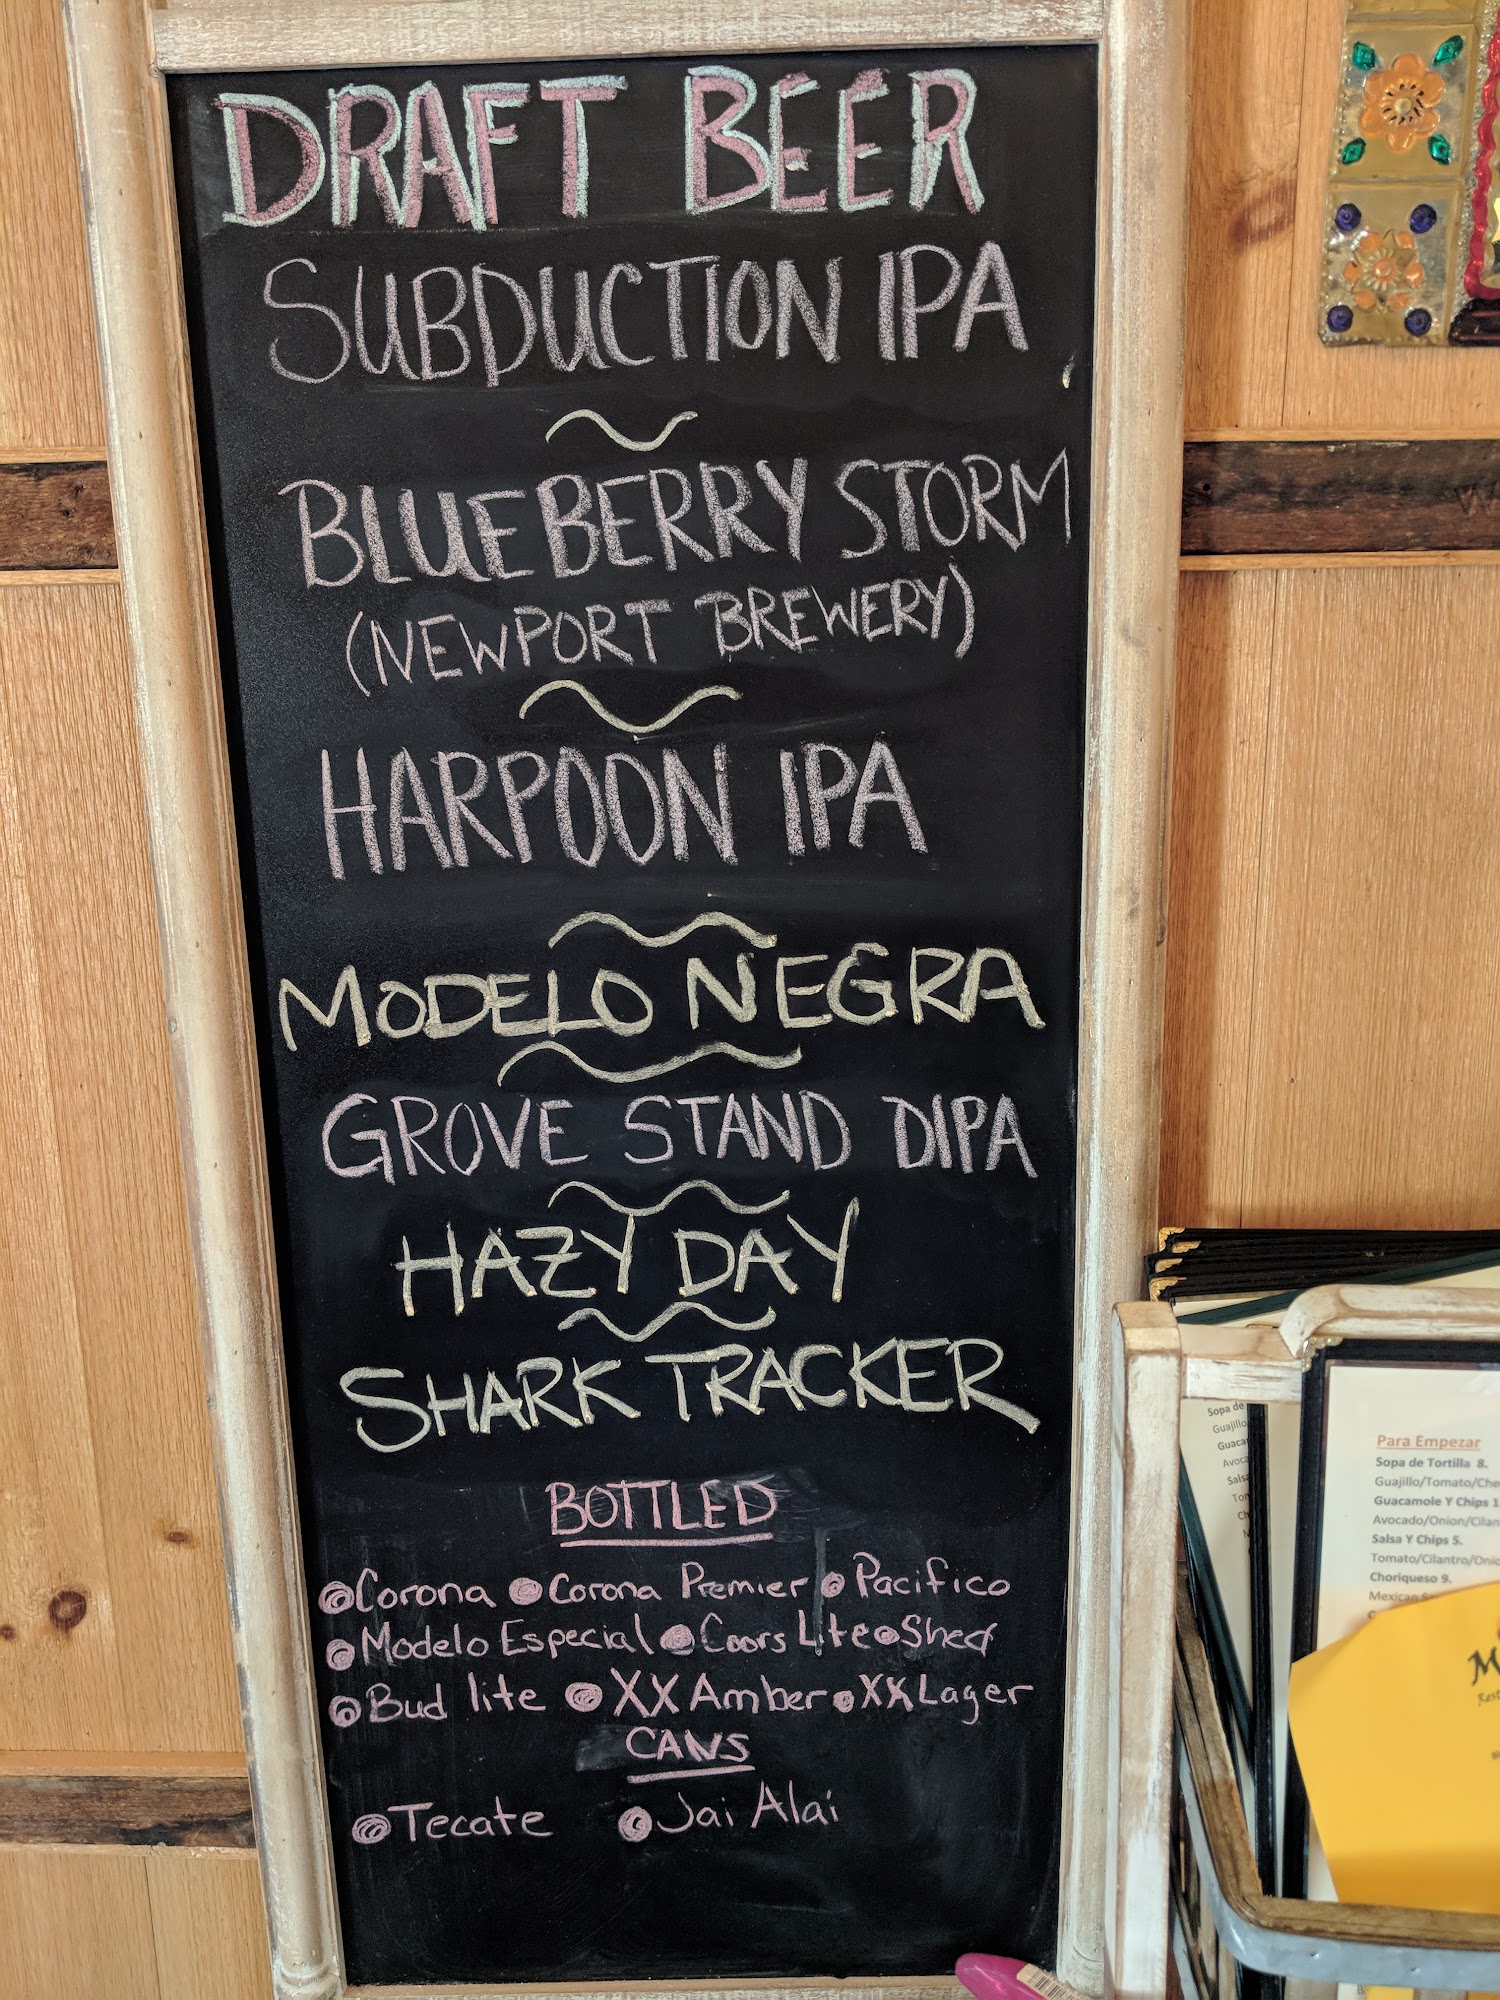 DRAFT BEER
SUBDUCTION IPA
BLUEBERRY STORM
(NEWPORT BREWERY)
HARPOON IPA
MODELO NEGRA
GROVE STAND DIPA
HAZY DAY
SHARK TRACKER
BOTTLED
Corona Corona Premier Pacifico
Modelo Especial Coors Lite Shed
Bud lite XX Amber XX Lager
CANS
Tecate Jai Alai
Sopa de
Guajillo
Guaca
Avoca
Salsa
Para Empezar
Sopa de Tortilla 8.
Guajillo/Tomato/Che
Guacamole Y Chips 1
Avocado/Onion/Cilan
Salsa Y Chips 5.
Tomato/Cilantro/Onio
Choriqueso 9.
Mexican